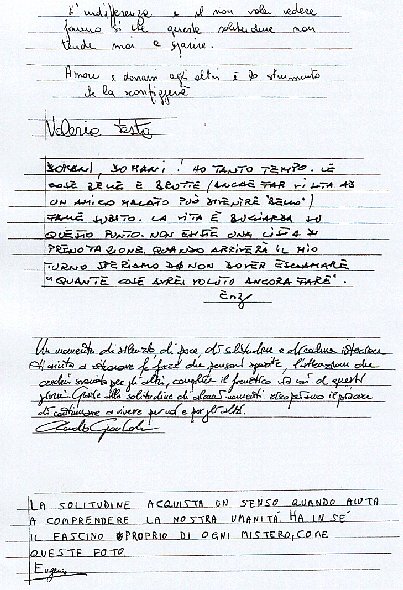 L'indifferenza e il non voler vedere
fanno sì che questa solitudine non
tende mai a sparire.
Amare e donarsi agli altri è lo strumento
che la sconfiggerà
Valeria Testa
DOMANI, DOMANI! HO TANTO TEMPO. LE
COSE BELLE E BRUTTE (ANCHE FAR VISITA AD
UN AMICO MALATO PUÒ DIVENIRE "BELLO")
FARLE SUBITO. LA VITA È BUGIARDA SU
QUESTO PUNTO. NON ESISTE UNA LISTA DI
PRENOTAZIONE. QUANDO ARRIVERÀ IL MIO
TURNO SPERIAMO DI NON DOVER ESCLAMARE
"QUANTE COSE AVREI VOLUTO ANCORA FARE".
Enzo
Un momento di silenzio, di pace, di solitudine e di calma interiore
ti aiuta a ritrovare le forze che pensavi sparite, l'attenzione che
per gli altri, il frenetico di questi
giorni. Grazie alla solitudine di alcuni momenti il piacere
di continuare a vivere per voi e per gli altri.
LA SOLITUDINE ACQUISTA UN SENSO QUANDO AIUTA
A COMPRENDERE LA NOSTRA UMANITÀ. HA IN SÉ
IL FASCINO PROPRIO DI OGNI MISTERO, COME
QUESTE FOTO
Eugenio